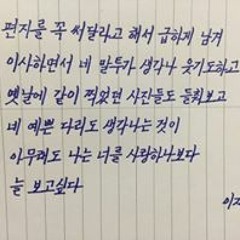 편지를 꼭 써달라고 해서 급하게 남겨
이사하면서 네 말투가 생각나 웃기도하고
옛날에 같이 찍었던 사진들도 들춰보고
네 예쁜 다리도 생각나는 것이
아무래도 나는 너를 사랑하나보다
늘 보고싶다